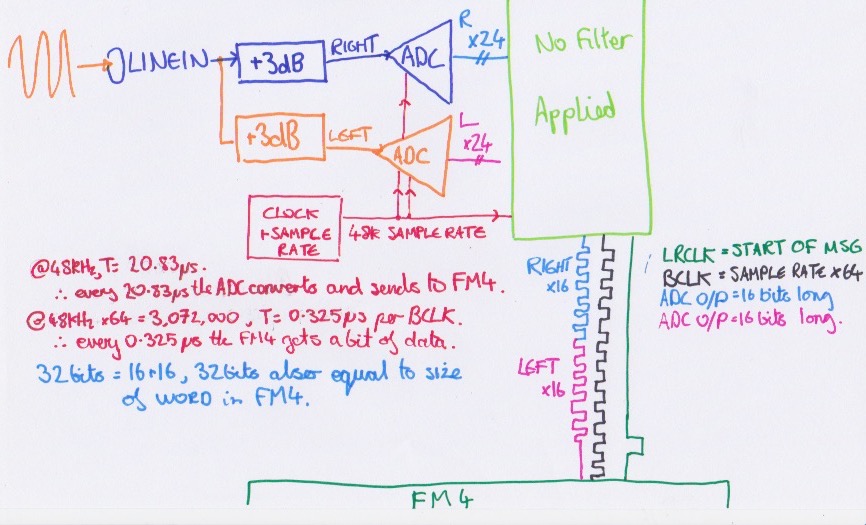 LINEIN
+3dB
RIGHT
ADC
R
x24
No Filter
Applied
+3dB
LEFT
ADC
L
x24
CLOCK
+SAMPLE
RATE
48k SAMPLE RATE
@48kHz, T= 20.83µs.
∴ every 20.83µs the ADC converts and sends to FM4.
@48kHz x64 = 3,072,000, T= 0.325µs per BCLK.
∴ every 0.325µs the FM4 gets a bit of data.
32bits = 16+16, 32bits also equal to size
of WORD in FM4.
RIGHT
x16
LEFT
x16
LRCLK = START OF MSG
BCLK = SAMPLE RATE x64
ADC O/P = 16 bits long
ADC O/P = 16 bits long.
FM4